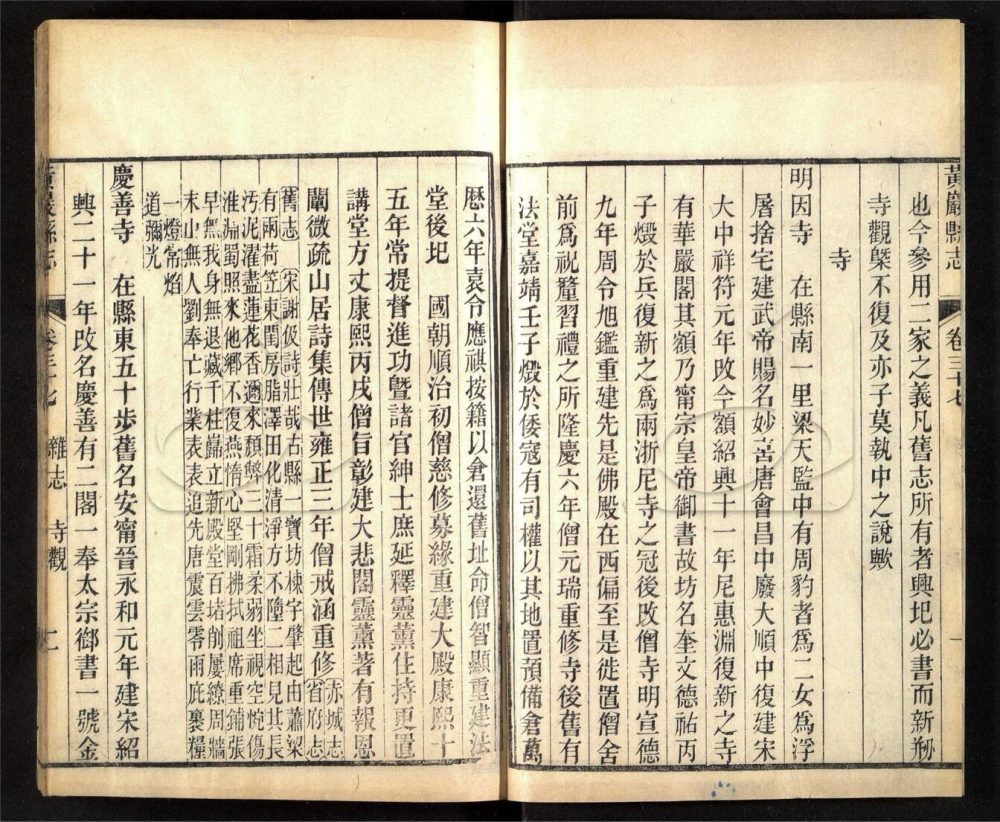 黃巖縣志　卷三十七
也今參用二家之義凡舊志所有者興圮必書而新剏
寺觀槩不復及亦子莫執中之說歟
寺
明因寺　在縣南一里梁天監中有周豹者爲二女爲浮
屠捨宅建武帝賜名妙喜唐會昌中廢大順中復建宋
大中祥符元年改今額紹興十一年尼惠淵復新之寺
有華嚴閣其額乃甯宗皇帝御書故坊名奎文德祐丙
子燬於兵復新之爲兩浙尼寺之冠後改僧寺明宣德
九年周令旭鑑重建先是佛殿在西偏至是徙置僧舍
前爲祝釐習禮之所隆慶六年僧元瑞重修寺後舊有
法堂嘉靖壬子燬於倭寇有司權以其地置預備倉萬
歷六年袁令應祺按籍以倉還舊址命僧智顯重建法
堂後圮　國朝順治初僧慈修募緣重建大殿康熙十
五年常提督進功曁諸官紳士庶延釋靈薰住持更置
講堂方丈康熙丙戌僧旨彰建大悲閣靈薰著有報恩
闡微疏山居詩集傳世雍正三年僧戒涵重修赤城志
省府志
舊志　宋謝伋詩壯哉古縣一寶坊棟宇肇起由蕭梁
有兩荷笠東閨房脂澤田化清淨方不墮二相見其長
汚泥濯盡蓮花香邇來頹弊三十霜柔弱坐視空惋傷
淮淵蜀照來他鄉不復燕惰心堅剛拂拭祖席重鋪張
早無我身無退藏千柱巋立新殿堂百堵削屢繚周牆
末山無人劉奉亡行業表表追先唐震雲零雨庇裹糧
一燈常焰
道彌光
慶善寺　在縣東五十步舊名安甯晉永和元年建宋紹
興二十一年改名慶善有二閣一奉太宗御書一號金
黃巖縣志　卷三十七　雜志　寺觀